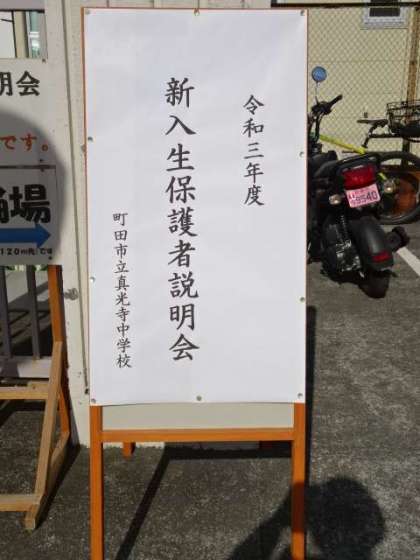 令和三年度
新入生保護者説明会
町田市立真光寺中学校
明会
です。
場
120m先)です
9540